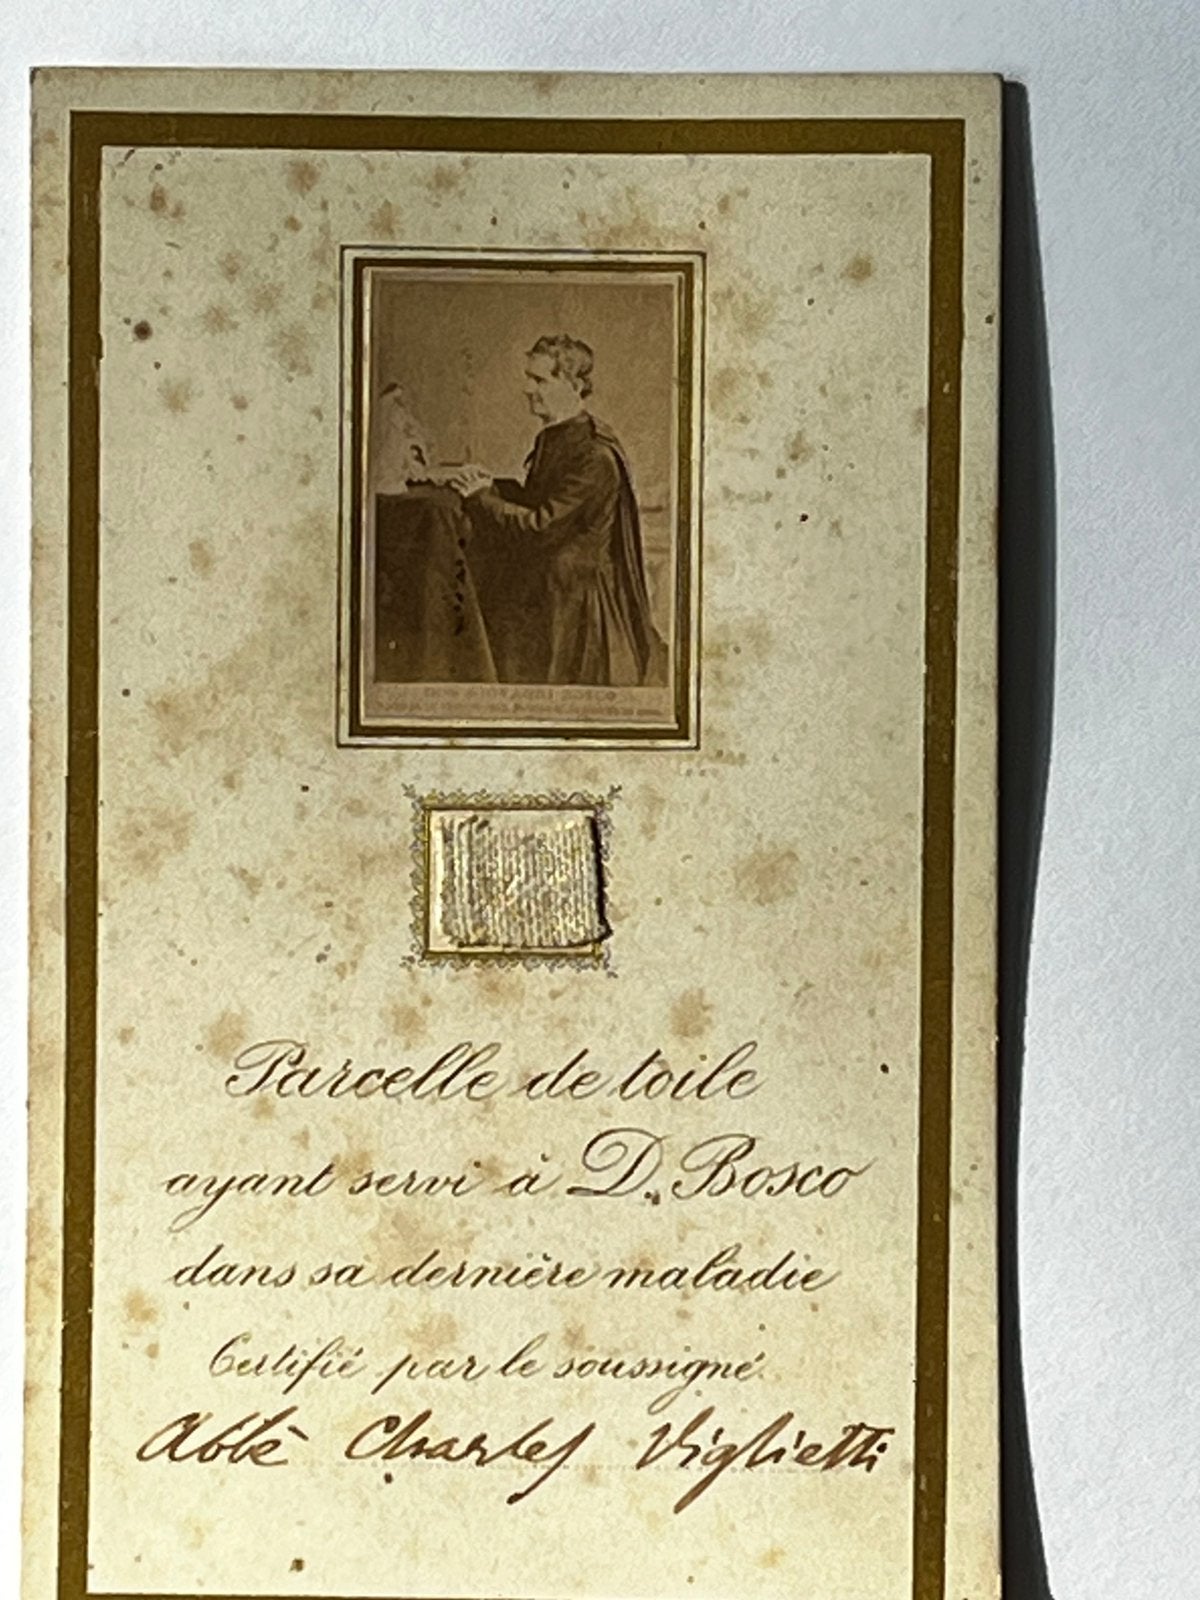 DON GIOVANNI BOSCO
Parcelle de toile
ayant servi à D. Bosco
dans sa dernière maladie
Certifié par le soussigné
Abbé Charles Viglietti